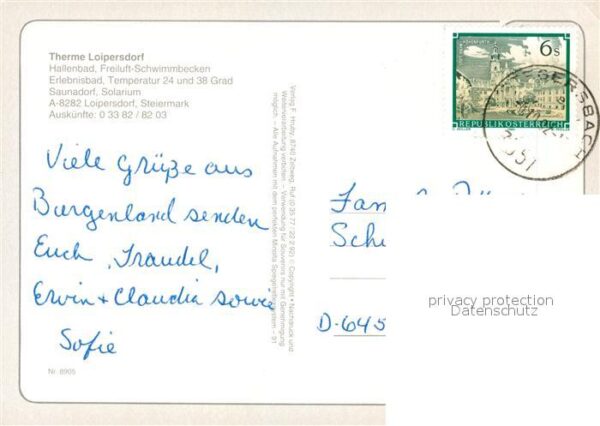 Therme Loipersdorf
Hallenbad, Freiluft-Schwimmbecken
Erlebnisbad, Temperatur 24 und 38 Grad
Saunadorf, Solarium
A-8282 Loipersdorf, Steiermark
Auskünfte: 0 33 82 / 82 03
Viele Grüße aus
Burgenland senden
Euch, Traudel,
Erwin + Claudia sowie
Sofie
Nr. 8905
Verlag F. Hruby, 8740 Zeltweg, Ruf (0 35 77 / 22 2 92) © Copyright • Nachdruck und
Weiterverarbeitung verboten – Verwendung für Souvenirs nur mit Genehmigung
möglich. – Alle Aufnahmen mit dem perfekten Minolta Spiegelreflexsystem – 91
6 S
REPUBLIK ÖSTERREICH
Fam.
Sche
D-645
privacy protection
Datenschutz